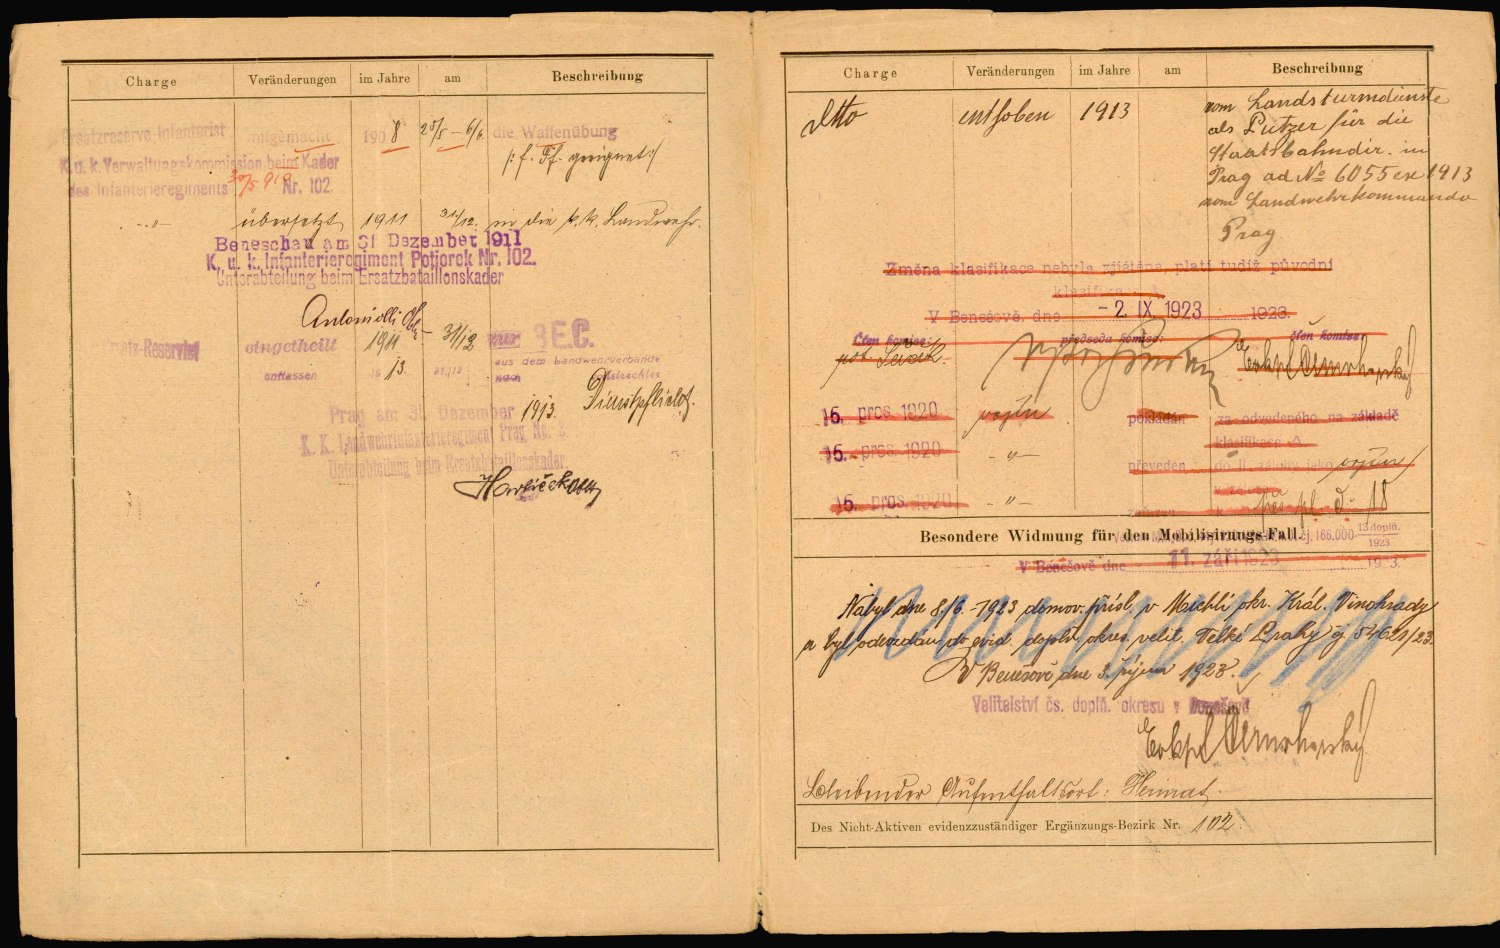 Charge Veränderungen im Jahre am Beschreibung
Ersatzreserve-Infanterist mitgemacht 1908 25/5 – 6/6. die Waffenübung
/: f. Ff. geeignet :/
K. u. k. Verwaltungskommission beim Kader
des Infanterieregiments Nr. 102.
-"- übersetzt 1911 31/12. in die k.k. Landwehr.
Beneschau am 31 Dezember 1911
K. u. k. Infanterieregiment Potiorek Nr. 102.
Unterabteilung beim Ersatzbataillonskader
Antoniolli
Ersatz-Reservist eingetheilt 1911 31/12 zur 3 E.C.
entlassen 1913 31/12 aus dem Landwehrverbande
nach
Dienstpflicht.
Prag am 31. Dezember 1913.
K. K. Landwehrinfanterieregiment Prag No. 8
Unterabteilung beim Ersatzbataillonskader
Havlíček
Charge Veränderungen im Jahre am Beschreibung
Dtto enthoben 1913 vom Landsturmdienste
als Putzer für die
Staatsbahndir. in
Prag ad No 6055 ex 1913
vom Landwehrkommando
Prag.
Změna klasifikace nebyla zjištěna, platí tudíž původní
klasifikace A
V Benešově, dne - 2. IX. 1923 1923.
Člen komise: předseda komise: člen komise:
16. pros. 1920 vojín pokládán za odvedeného na základě
klasifikace A
15. pros. 1920 -"- převeden do II. zálohy jako vojín
v záloze
16. pros. 1920 -"- zařazen k pěš. pl. č. 18
Besondere Widmung für den Mobilisirungs-Fall.
čj. 166.000 13 doplň. 1923
V Benešově dne 11. září 1923 1923.
Nabyl dne 8./6. -1923 domov. přísl. v Michli okr. Král. Vinohrady
a byl odevzdán do evid. doplň. okres. velit. Velké Prahy čj 54621/23.
V Benešově, dne 3. října 1923.
Velitelství čs. doplň. okresu v Benešově
Bleibender Aufenthaltsort: Heimat.
Des Nicht-Aktiven evidenzzuständiger Ergänzungs-Bezirk Nr. 102.